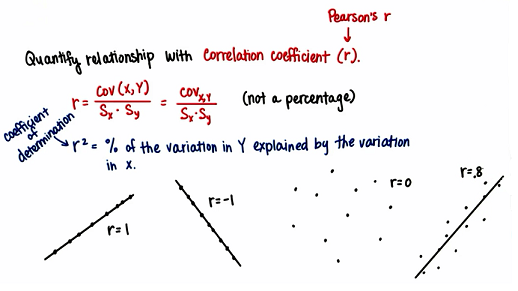 Pearson's r
Quantify relationship with correlation coefficient (r).
r = cov(x,Y) / Sx · Sy = covx,y / Sx·Sy (not a percentage)
coefficient
of
determination
r² = % of the variation in Y explained by the variation
in x.
r=1
r=-1
r=0
r=.8